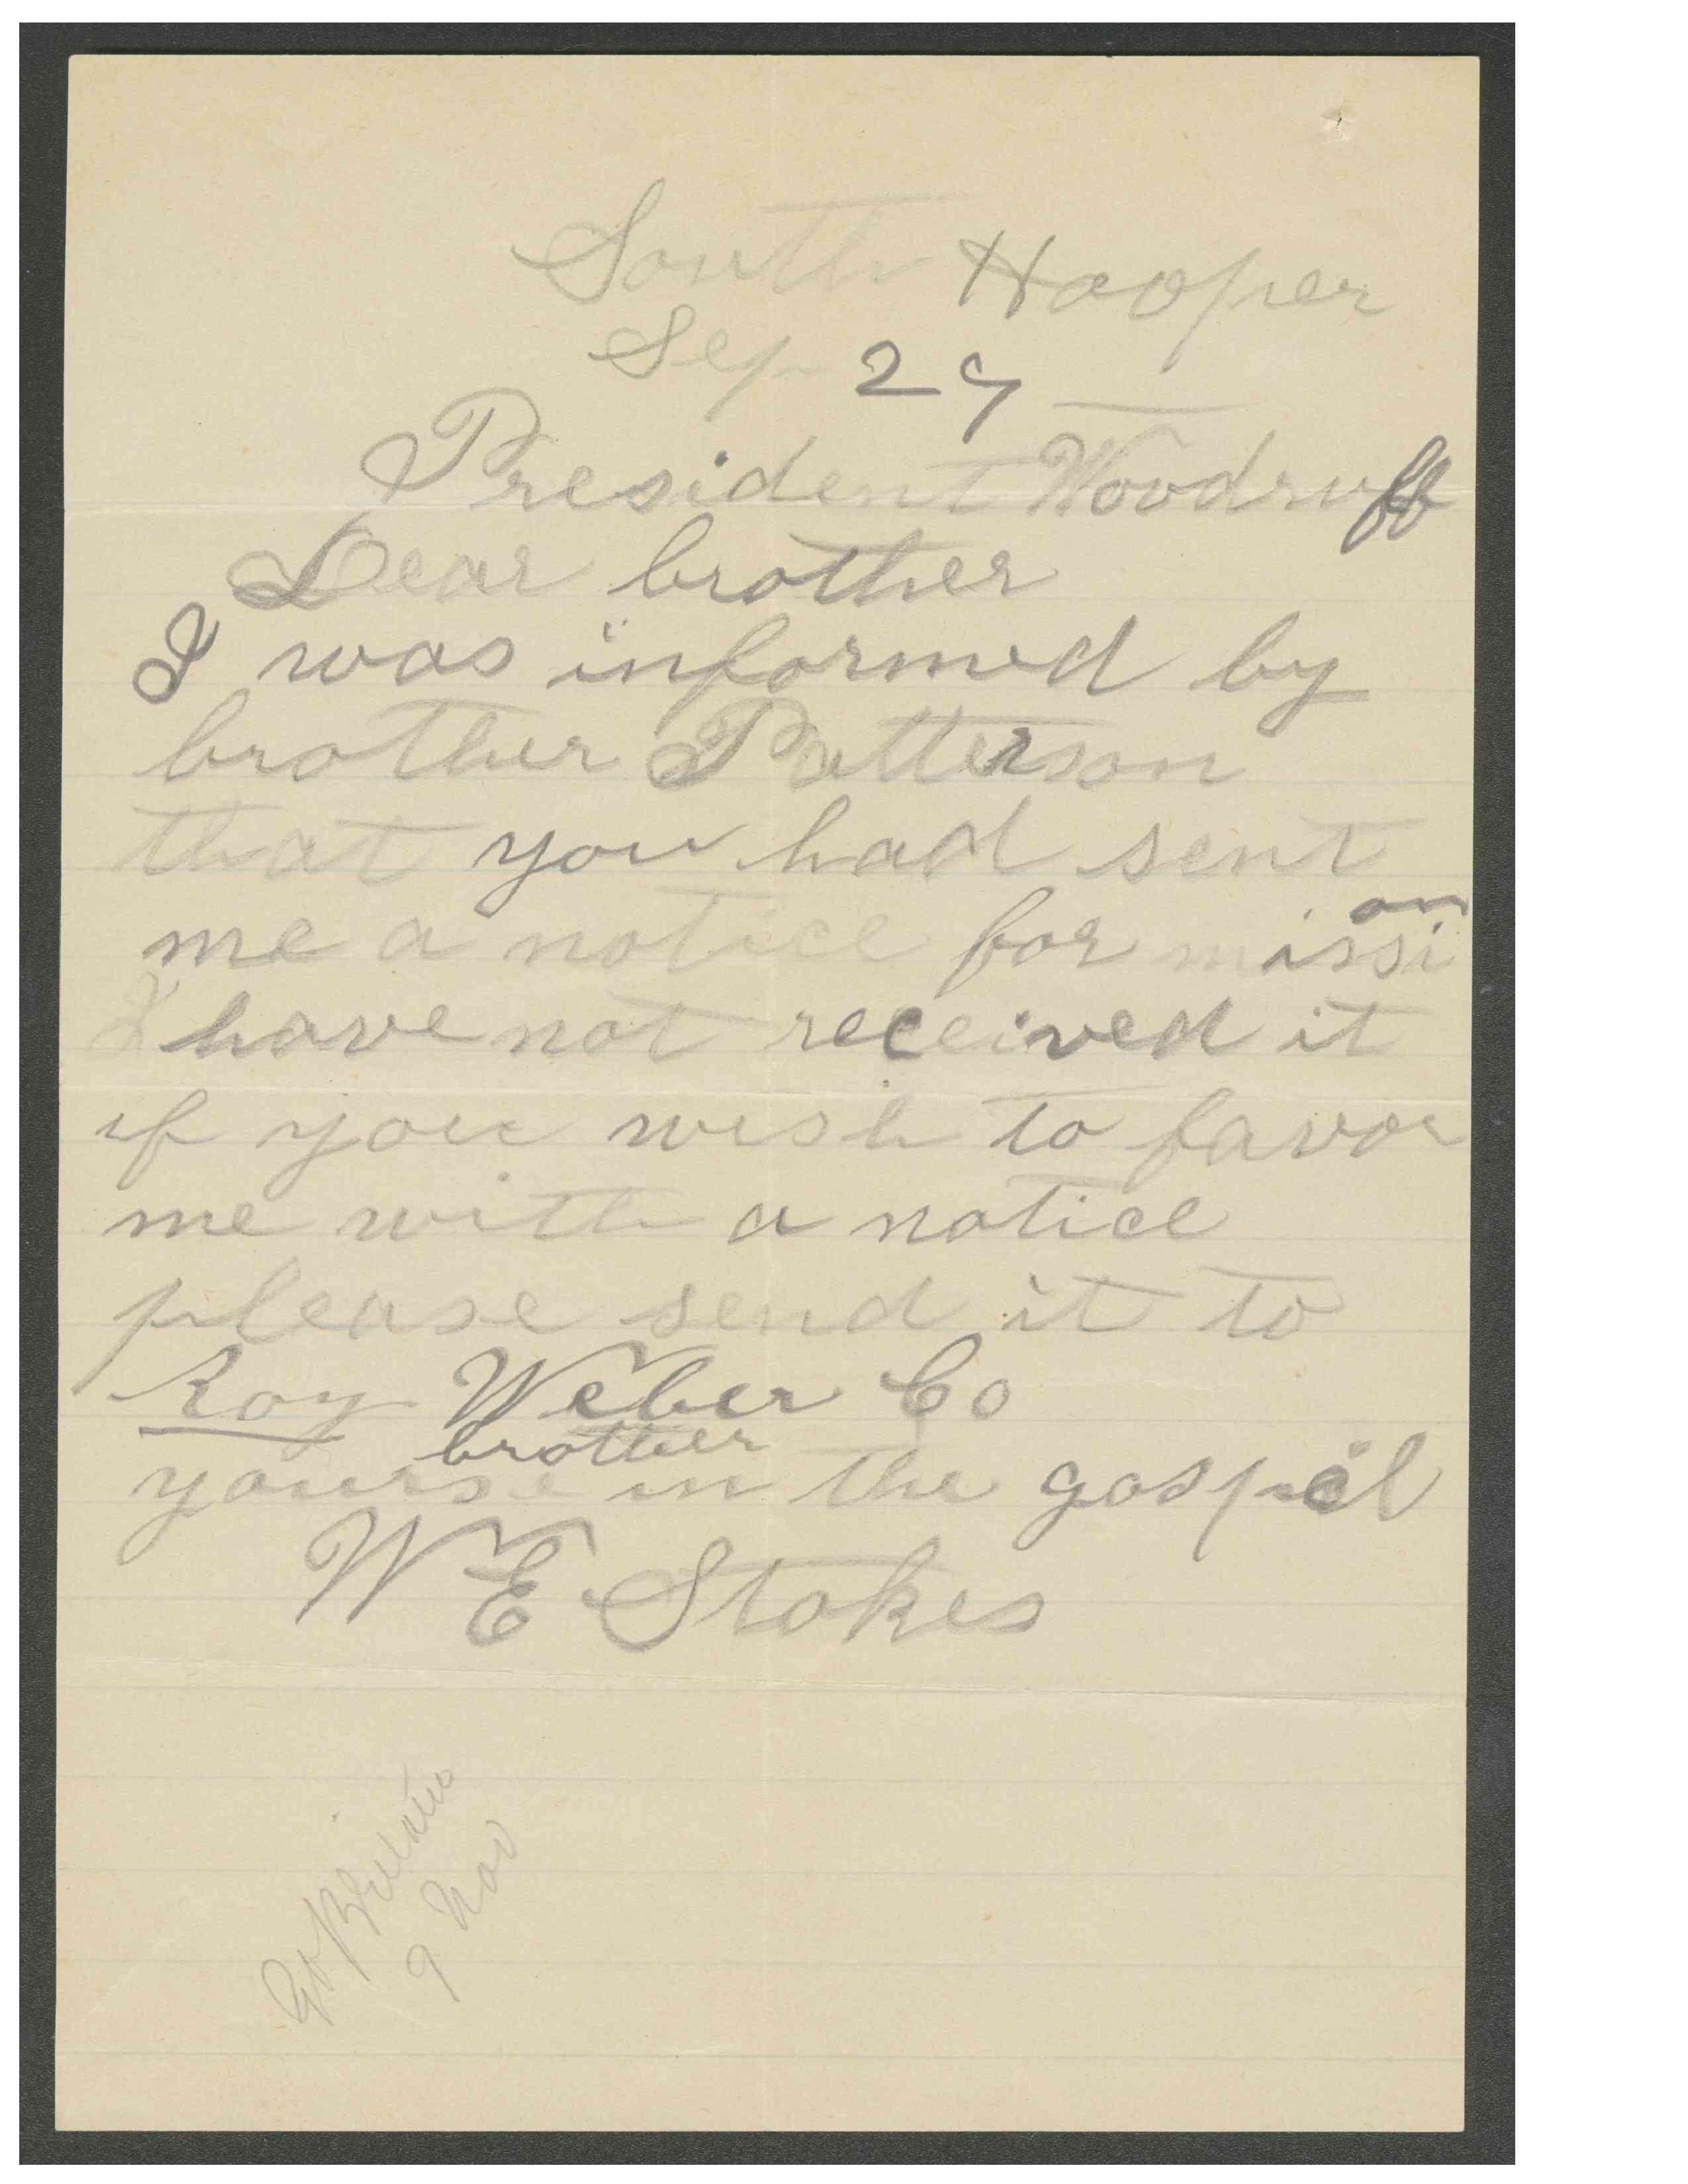 South Hooper
Sep 27
President Woodruff
Dear brother
I was informed by
brother Patterson
that you had sent
me a notice for mission
I have not received it
if you wish to favor
me with a notice
please send it to
Roy Weber Co
brother
yourse in the gospel
W E Stokes
Gt Britain
9 Nov